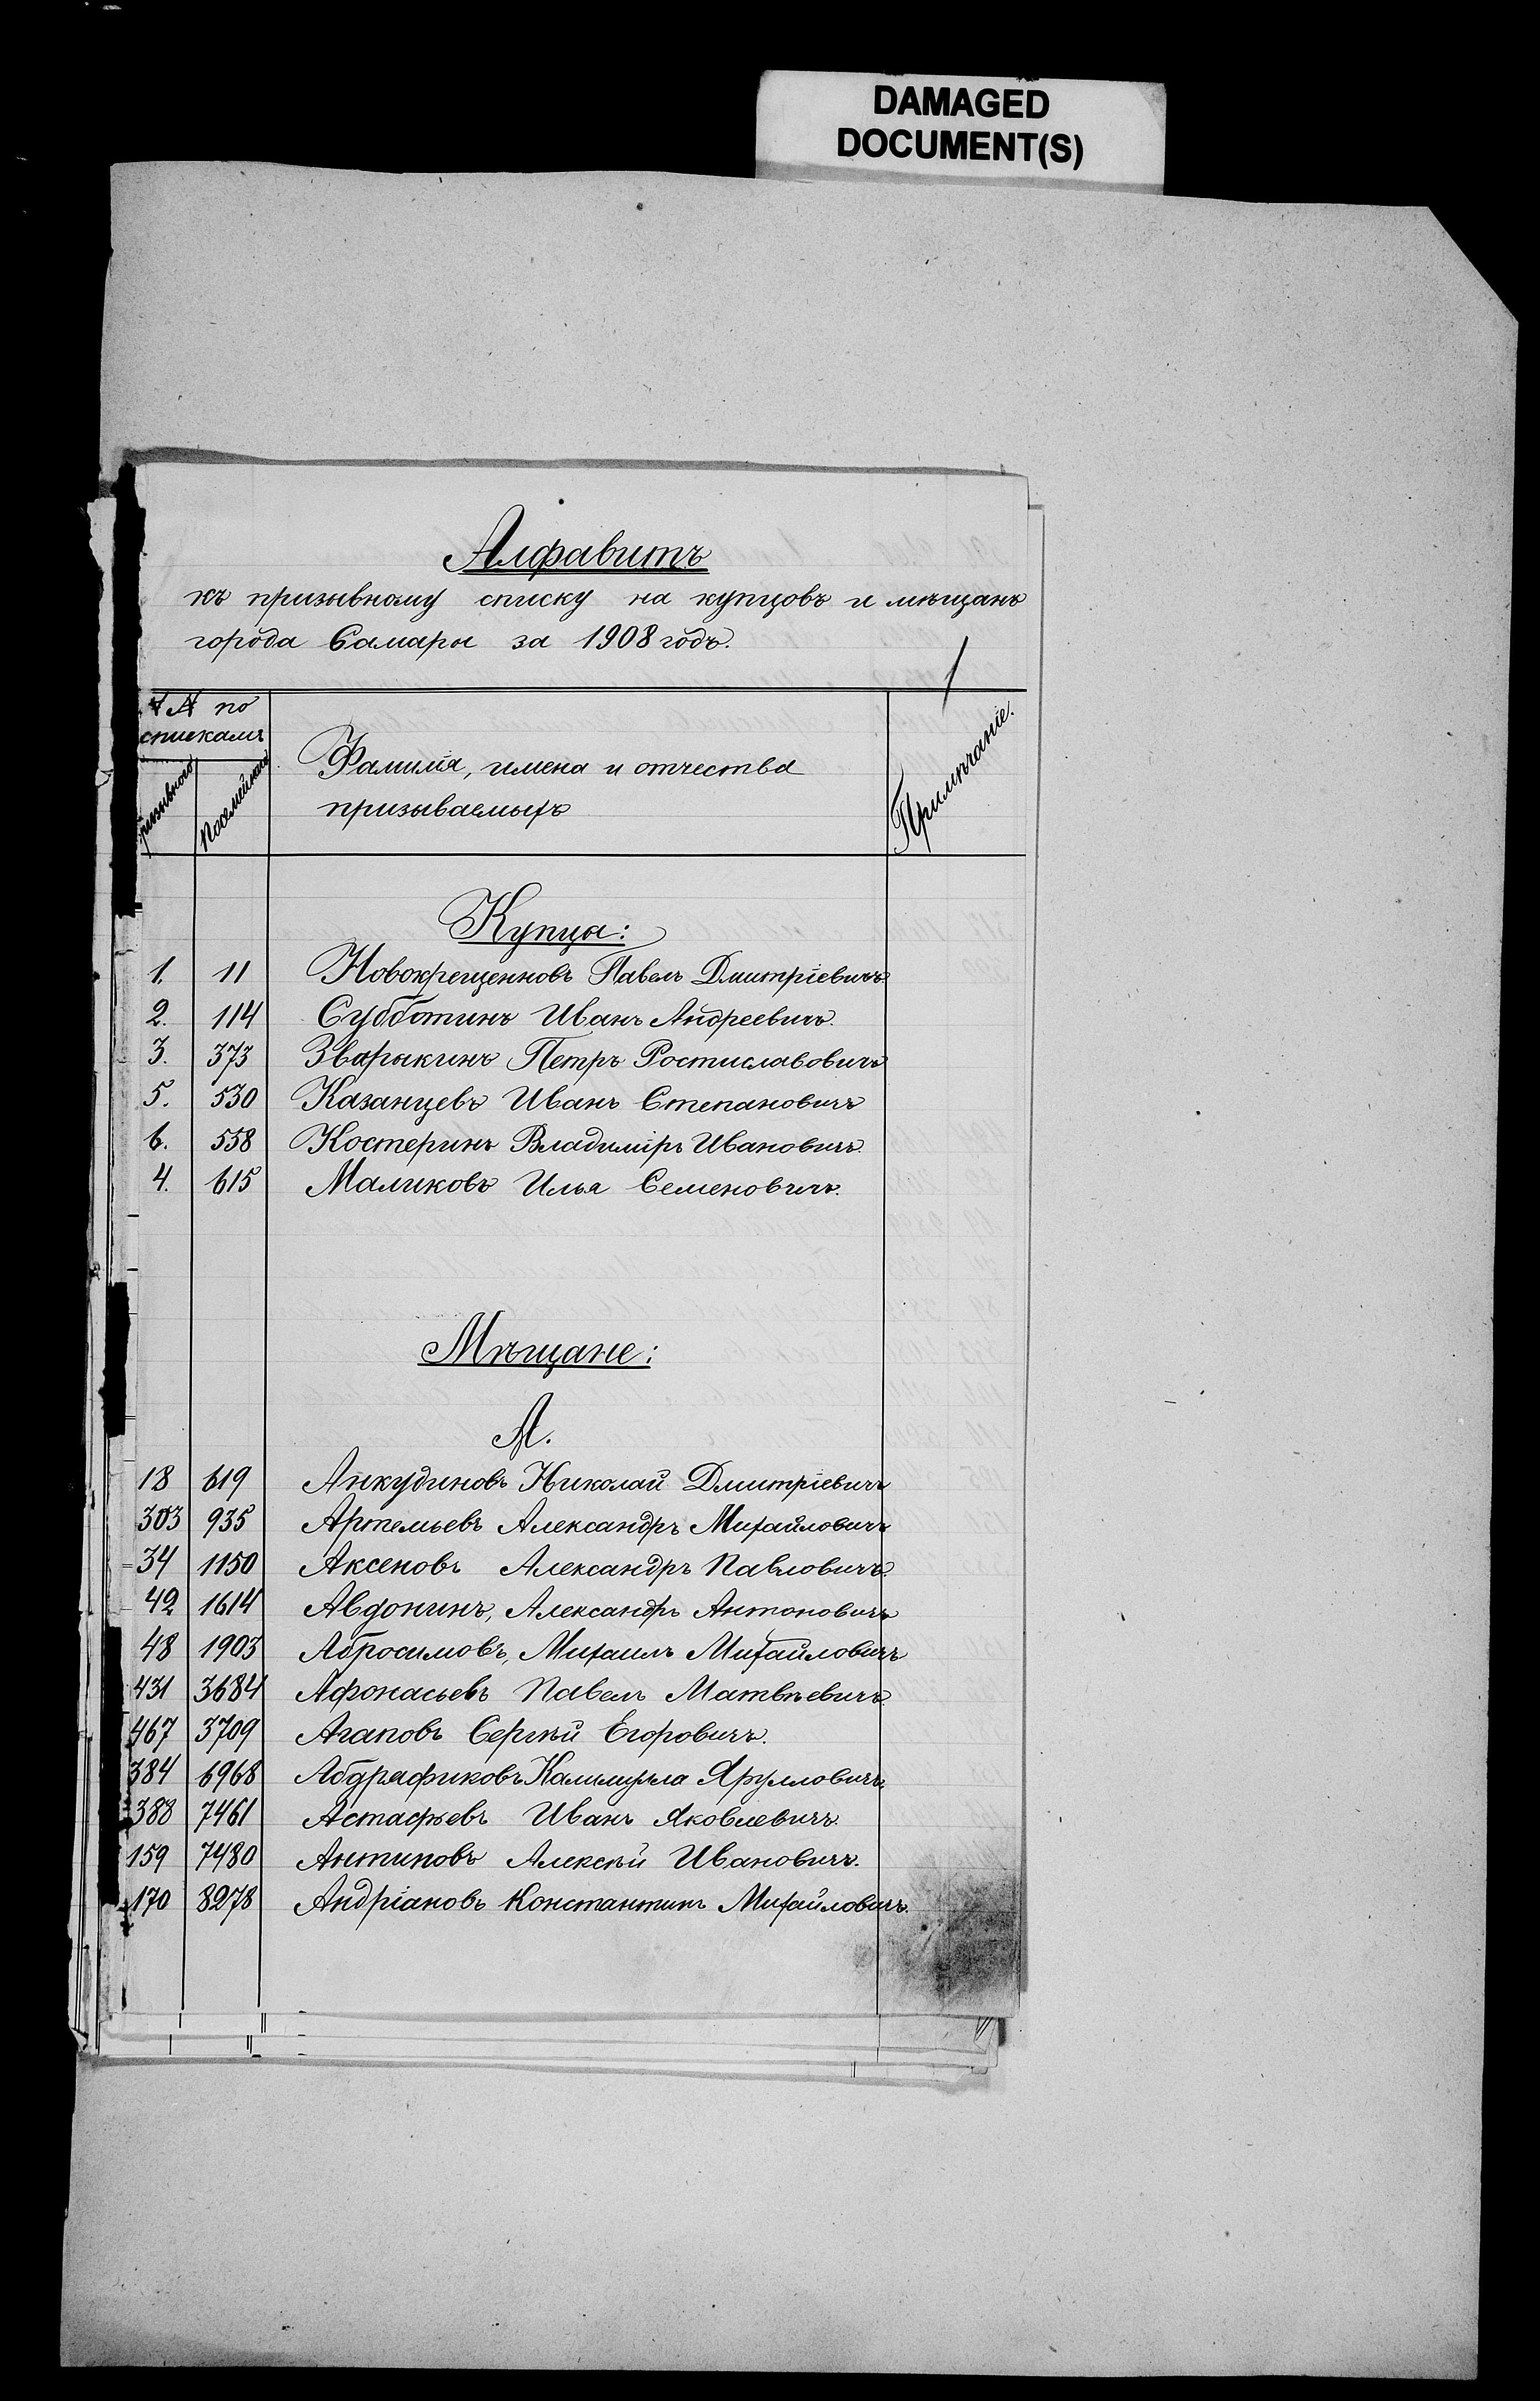 DAMAGED
DOCUMENT(S)
Алфавитъ
къ призывному списку на купцовъ и мѣщанъ
города Самары за 1908 годъ.
1
№№ по
спискамъ
Фамилія, имена и отчества
призываемыхъ
Примѣчаніе.
призывного
Посемейнаго
Купцы:
1. 11 Новокрещенновъ Павелъ Дмитріевичъ
2. 114 Субботинъ Иванъ Андреевичъ.
3. 373 Зварыкинъ Петръ Ростиславовичъ
5. 530 Казанцевъ Иванъ Степановичъ
6. 558 Костеринъ Владиміръ Ивановичъ.
4. 615 Маликовъ Илья Семеновичъ.
Мѣщане:
А.
18 619 Анкудиновъ Николай Дмитріевичъ
303 935 Артемьевъ Александръ Михайловичъ
34 1150 Аксеновъ Александръ Павловичъ.
42 1614 Авдонинъ, Александръ Антоновичъ
48 1903 Абросимовъ, Михаилъ Михайловичъ
431 3684 Афонасьевъ Павелъ Матвѣевичъ.
467 3709 Агаповъ Сергѣй Егоровичъ.
384 6968 Абдрафиковъ Калимулла Яруловичъ.
388 7461 Астафьевъ Иванъ Яковлевичъ.
159 7480 Антиповъ Алексѣй Ивановичъ.
170 8278 Андріановъ Константинъ Михайловичъ.